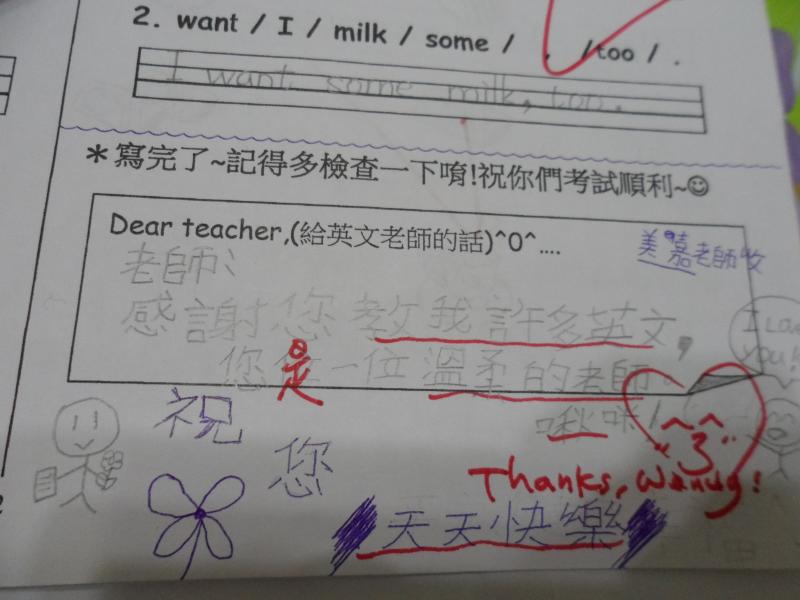 2. want / I / milk / some / , /too / .
I want some milk, too.
＊寫完了~記得多檢查一下唷!祝你們考試順利~☺
Dear teacher,(給英文老師的話)^0^....
美嘉老師收
老師:
感謝您教我許多英文,
您是一位溫柔的老師。
啾咪!
I Love
you!
祝
您
Thanks,
天天快樂